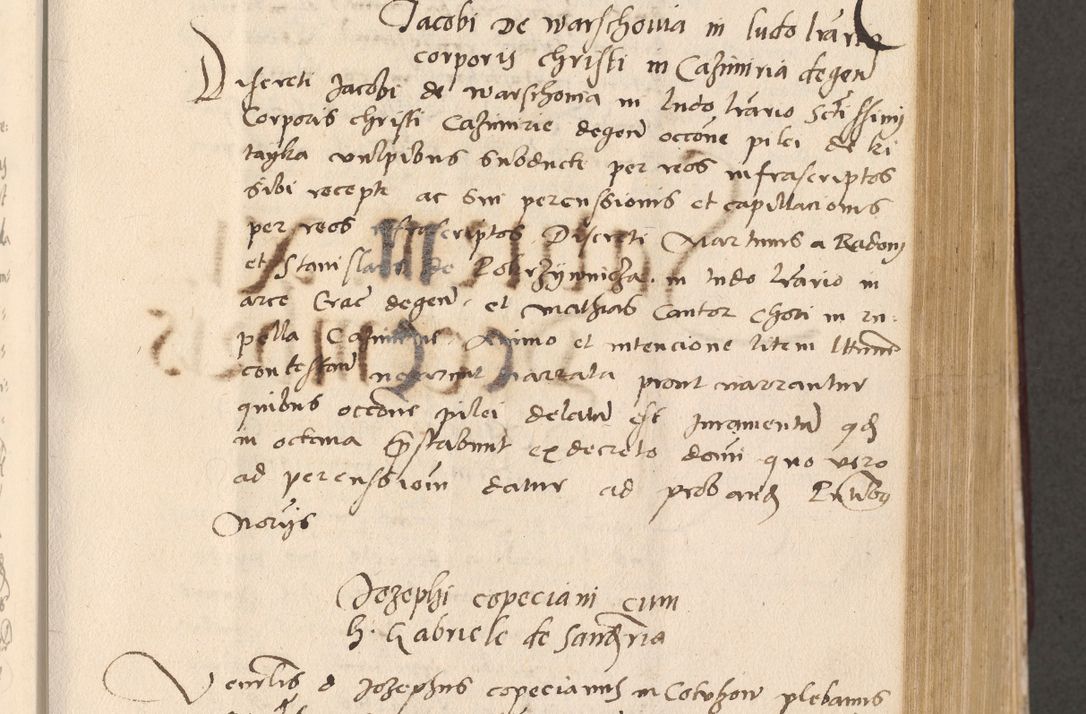 Jacobi de warschovia in ludo lrario
corporis christi in Cazimiria degen
Discreti Jacobi de warschovia in ludo lrario Sctissimi
Corporis christi Cazimirie degen occone pilei de ki
tayka vulpibus subducti per reos infrascriptos
sibi recepti ac sui percussionis et capillacionis
per reos infrascriptos Discreti Martinus a Radom
et Stanislaus de in ludo lrario in
arce Crac degen et Mathias Cantor Chori in ca
pella Animo et intencione litem
contestan narrata prout narrantur
quibus occone pilei delatu est Juramentu qd
in octava prestabunt ex decreto domi quo vero
ad percussionem datur ad proband
Novys
Jozephi copeciani cum
h. Gabriele de
Venerlis d Jozephus copecianus in plebanus